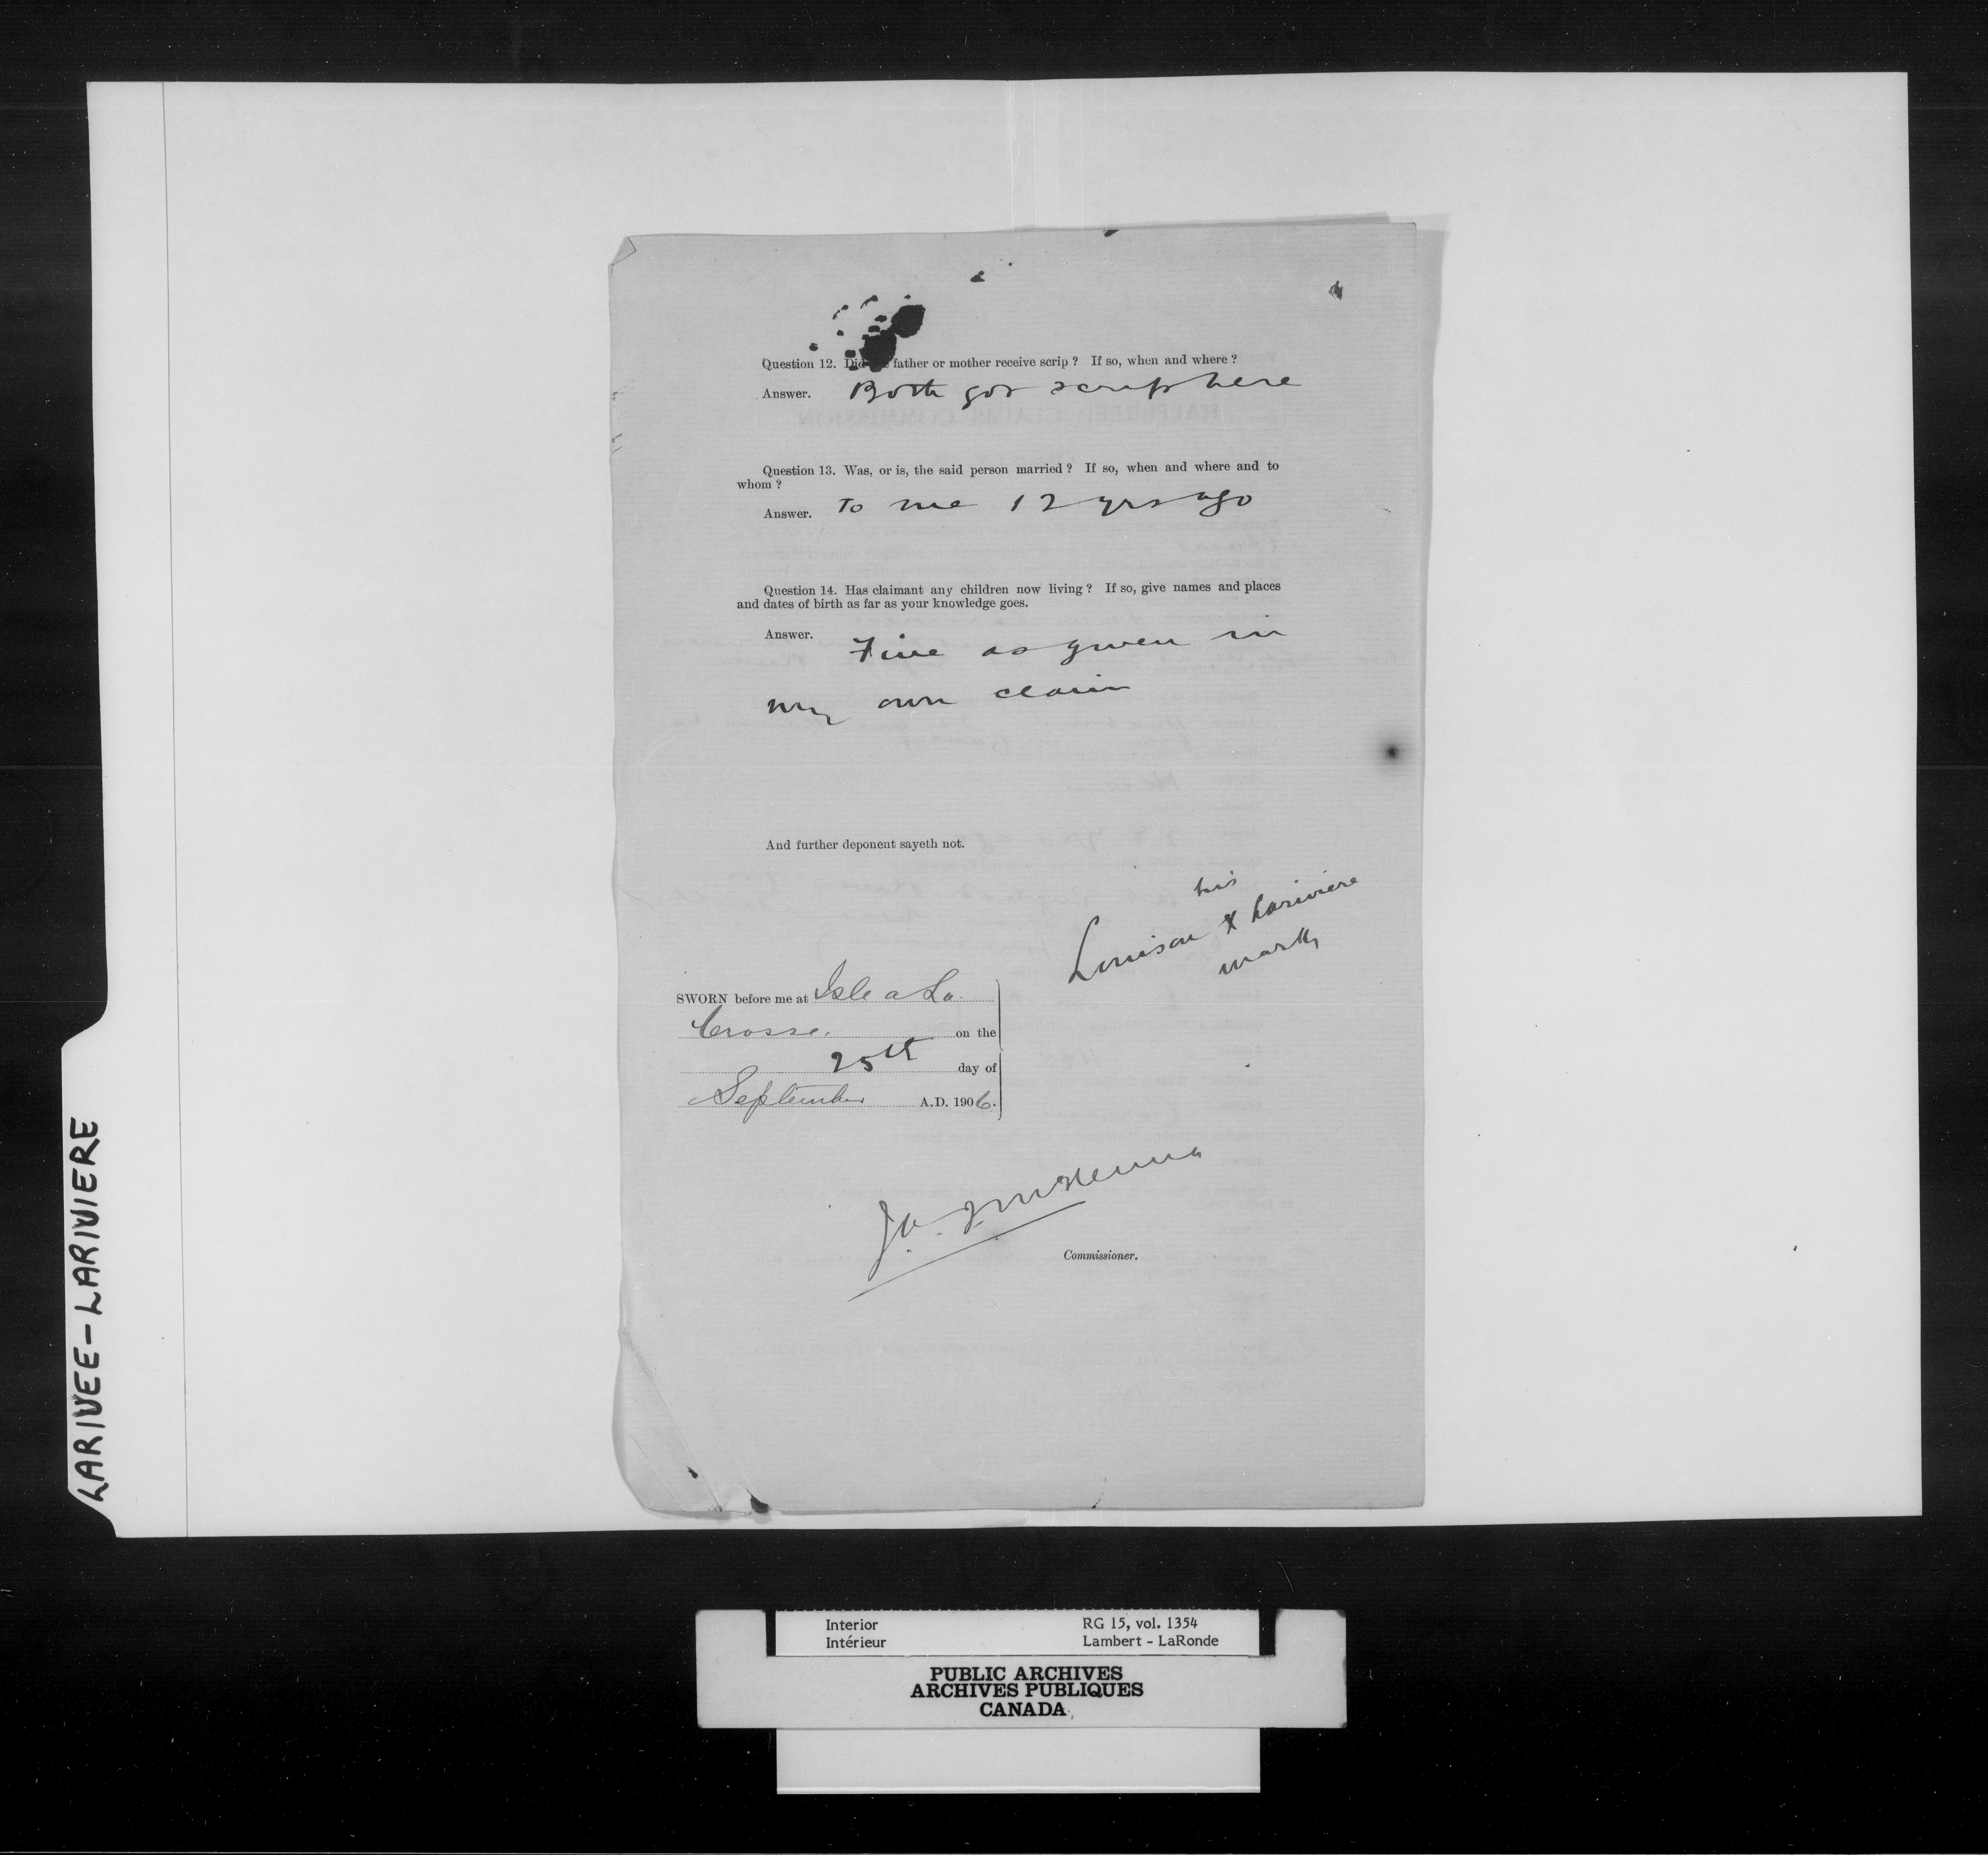 Question 12. Did father or mother receive scrip ? If so, when and where ?
Answer. Both got scrip here
Question 13. Was, or is, the said person married ? If so, when and where and to
whom ?
Answer. To me 12 yrs ago
Question 14. Has claimant any children now living ? If so, give names and places
and dates of birth as far as your knowledge goes.
Answer. Five as given in
my own claim
And further deponent sayeth not.
his
Louison X Lariviere
mark
SWORN before me at Isle a La
Crosse. on the
25th day of
September A.D. 1906.
J. A. J. McKenna
Commissioner.
LARIVEE-LARIVIERE
Interior RG 15, vol. 1354
Intérieur Lambert - LaRonde
PUBLIC ARCHIVES
ARCHIVES PUBLIQUES
CANADA